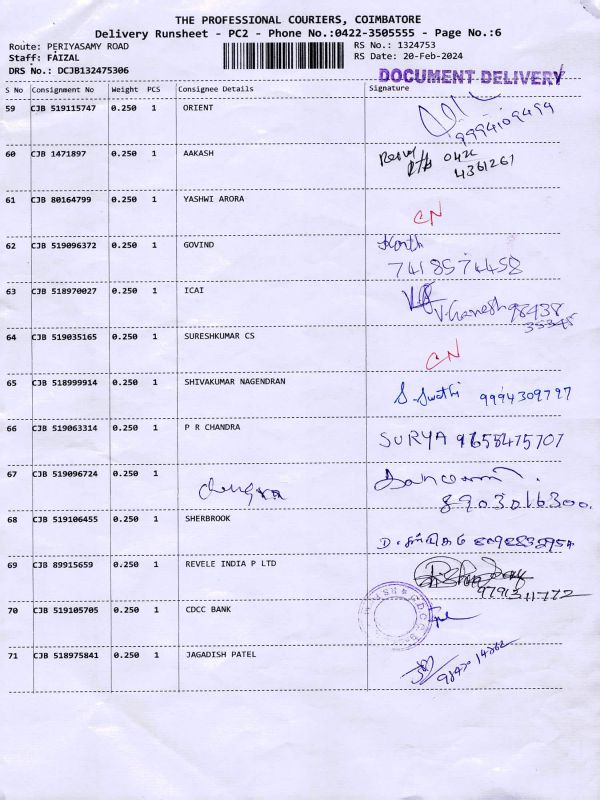 THE PROFESSIONAL COURIERS, COIMBATORE
Delivery Runsheet - PC2 - Phone No.:0422-3505555 - Page No.:6
Route: PERIYASAMY ROAD RS No.: 1324753
Staff: FAIZAL RS Date: 20-Feb-2024
DRS No.: DCJB132475306 DOCUMENT DELIVERY
S No Consignment No Weight PCS Consignee Details Signature
59 CJB 519115747 0.250 1 ORIENT 9994109499
60 CJB 1471897 0.250 1 AAKASH 0422
4361261
61 CJB 80164799 0.250 1 YASHWI ARORA CN
62 CJB 519096372 0.250 1 GOVIND
7418574458
63 CJB 518970027 0.250 1 ICAI V. Ganesh 98438
35345
64 CJB 519035165 0.250 1 SURESHKUMAR CS CN
65 CJB 518999914 0.250 1 SHIVAKUMAR NAGENDRAN S. Swathi 9994309797
66 CJB 519063314 0.250 1 P R CHANDRA SURYA 9655475707
67 CJB 519096724 0.250 1
8903016300.
68 CJB 519106455 0.250 1 SHERBROOK
69 CJB 89915659 0.250 1 REVELE INDIA P LTD
9791311772
70 CJB 519105705 0.250 1 CDCC BANK
71 CJB 518975841 0.250 1 JAGADISH PATEL